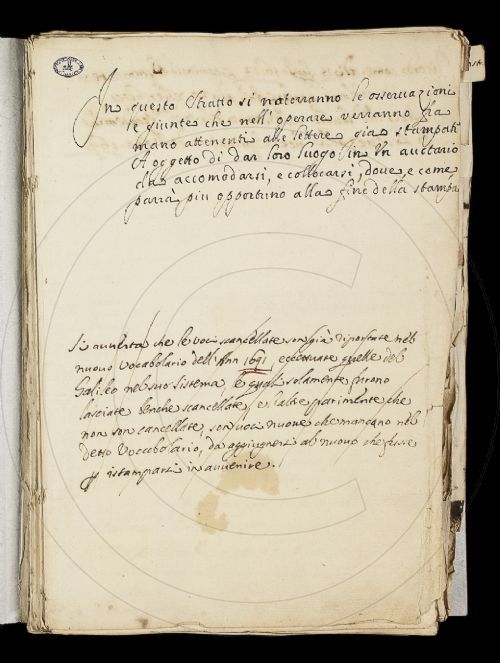 In questo stratto si noteranno le osservazioni
le giunte che nell' operare verranno fra
mano attenenti alle lettere gia stampati
A oggetto di dar loro luogo in Un auctario
da accomodarsi, e collocarsi, dove, e come
parrà piu opportuno alla fine della stampa
Si avverta che le voci scancellate son già riportate nel
nuovo Vocabolario dell' Ann 1691 eccettuate quelle del
Galileo nel suo sistema, e quali solamente furono
lasciate benche scancellate, e l'altre parimente che
non son cancellate, son voci nuove che mancano nel
detto Voccabolario, da aggiugnersi al nuovo che fusse
p istamparsi in avvenire.